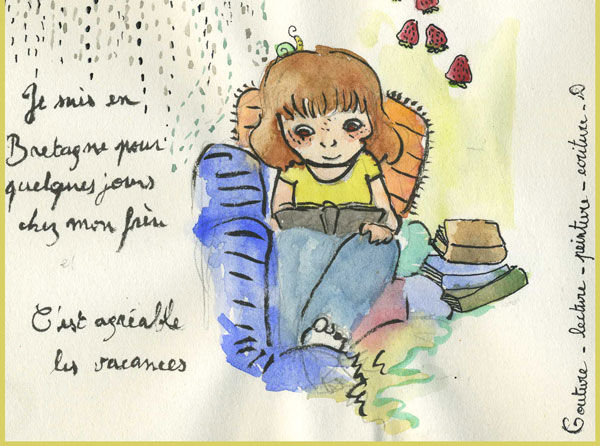 Je suis en
Bretagne pour
quelques jours
chez mon frère
C'est agréable
les vacances
Couture - lecture - peinture - ecriture - D